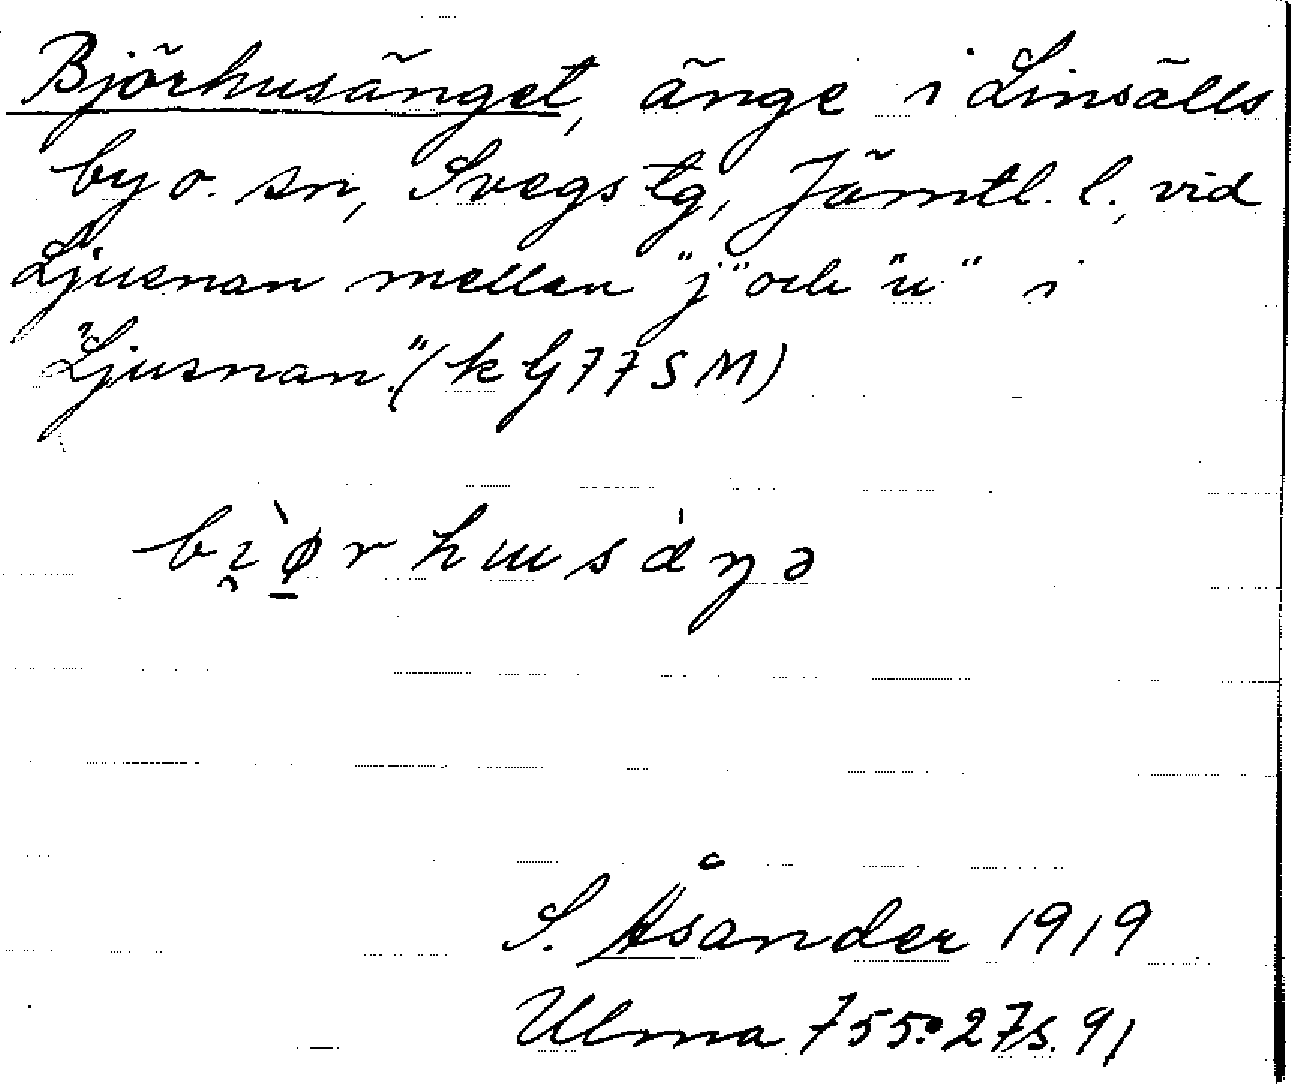 Björhusänget, änge i Linsälls
by o. sn, Svegs tg, Jämtl. l., vid
Ljusnan mellan "j" och "u" i
"Ljusnan." (k bj 77 S M)
S. Åsander 1919
Ulma 755:27 s. 91